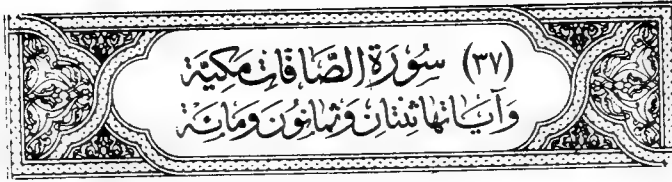 (٣٧) سُورَةُ الصَّافَّاتِ مَكِّيَّة
وَآيَاتُهَا ثِنْتَانِ وَثَمَانُونَ وَمِائَة